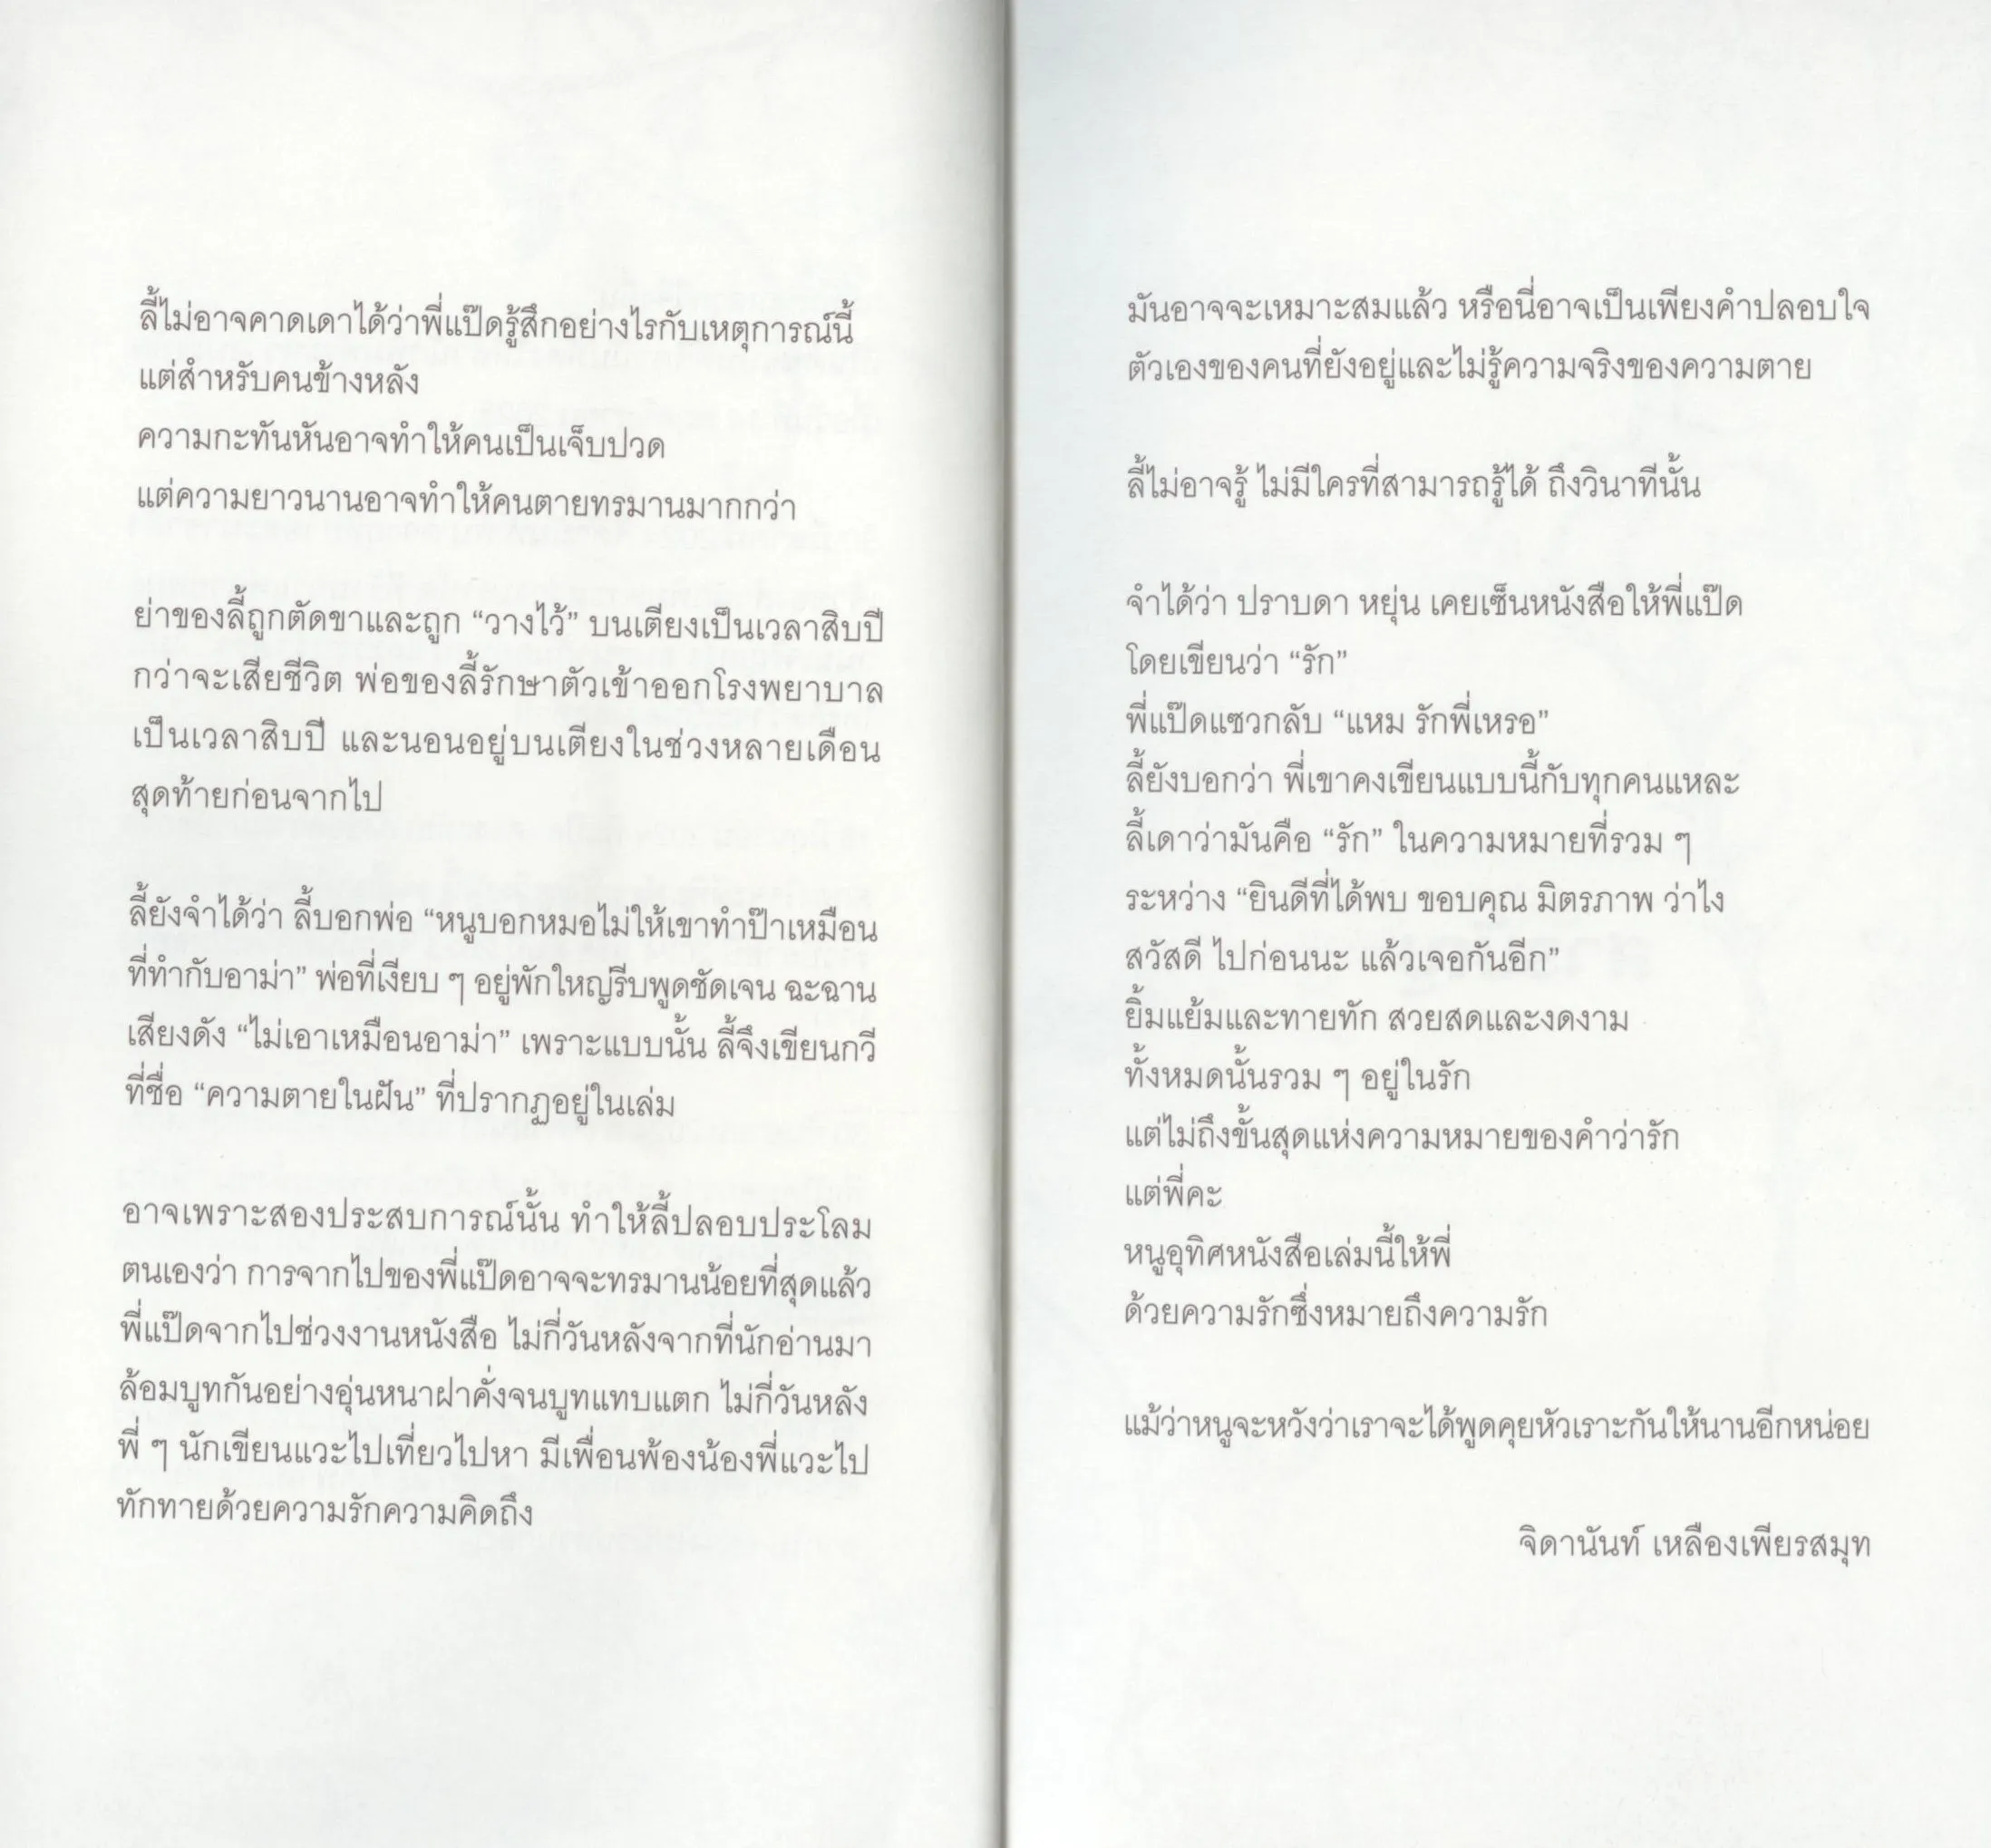 ลี้ไม่อาจคาดเดาได้ว่าพี่แป๊ดรู้สึกอย่างไรกับเหตุการณ์นี้
แต่สำหรับคนข้างหลัง
ความกะทันหันอาจทำให้คนเป็นเจ็บปวด
แต่ความยาวนานอาจทำให้คนตายทรมานมากกว่า
ย่าของลี้ถูกตัดขาและถูก “วางไว้” บนเตียงเป็นเวลาสิบปี
กว่าจะเสียชีวิต พ่อของลี้รักษาตัวเข้าออกโรงพยาบาล
เป็นเวลาสิบปี และนอนอยู่บนเตียงในช่วงหลายเดือน
สุดท้ายก่อนจากไป
ลี้ยังจำได้ว่า ลี้บอกพ่อ “หนูบอกหมอไม่ให้เขาทำป๊าเหมือน
ที่ทำกับอาม่า” พ่อที่เงียบ ๆ อยู่พักใหญ่รีบพูดชัดเจน ฉะฉาน
เสียงดัง “ไม่เอาเหมือนอาม่า” เพราะแบบนั้น ลี้จึงเขียนกวี
ที่ชื่อ “ความตายในฝัน” ที่ปรากฏอยู่ในเล่ม
อาจเพราะสองประสบการณ์นั้น ทำให้ลี้ปลอบประโลม
ตนเองว่า การจากไปของพี่แป๊ดอาจจะทรมานน้อยที่สุดแล้ว
พี่แป๊ดจากไปช่วงงานหนังสือ ไม่กี่วันหลังจากที่นักอ่านมา
ล้อมบูทกันอย่างอุ่นหนาฝาคั่งจนบูทแทบแตก ไม่กี่วันหลัง
พี่ ๆ นักเขียนแวะไปเที่ยวไปหา มีเพื่อนพ้องน้องพี่แวะไป
ทักทายด้วยความรักความคิดถึง
มันอาจจะเหมาะสมแล้ว หรือนี่อาจเป็นเพียงคำปลอบใจ
ตัวเองของคนที่ยังอยู่และไม่รู้ความจริงของความตาย
ลี้ไม่อาจรู้ ไม่มีใครที่สามารถรู้ได้ ถึงวินาทีนั้น
จำได้ว่า ปราบดา หยุ่น เคยเซ็นหนังสือให้พี่แป๊ด
โดยเขียนว่า “รัก”
พี่แป๊ดแซวกลับ “แหม รักพี่เหรอ”
ลี้ยังบอกว่า พี่เขาคงเขียนแบบนี้กับทุกคนแหละ
ลี้เดาว่ามันคือ “รัก” ในความหมายที่รวม ๆ
ระหว่าง “ยินดีที่ได้พบ ขอบคุณ มิตรภาพ ว่าไง
สวัสดี ไปก่อนนะ แล้วเจอกันอีก”
ยิ้มแย้มและทายทัก สวยสดและงดงาม
ทั้งหมดนั้นรวม ๆ อยู่ในรัก
แต่ไม่ถึงขั้นสุดแห่งความหมายของคำว่ารัก
แต่พี่คะ
หนูอุทิศหนังสือเล่มนี้ให้พี่
ด้วยความรักซึ่งหมายถึงความรัก
แม้ว่าหนูจะหวังว่าเราจะได้พูดคุยหัวเราะกันให้นานอีกหน่อย
จิดานันท์ เหลืองเพียรสมุท